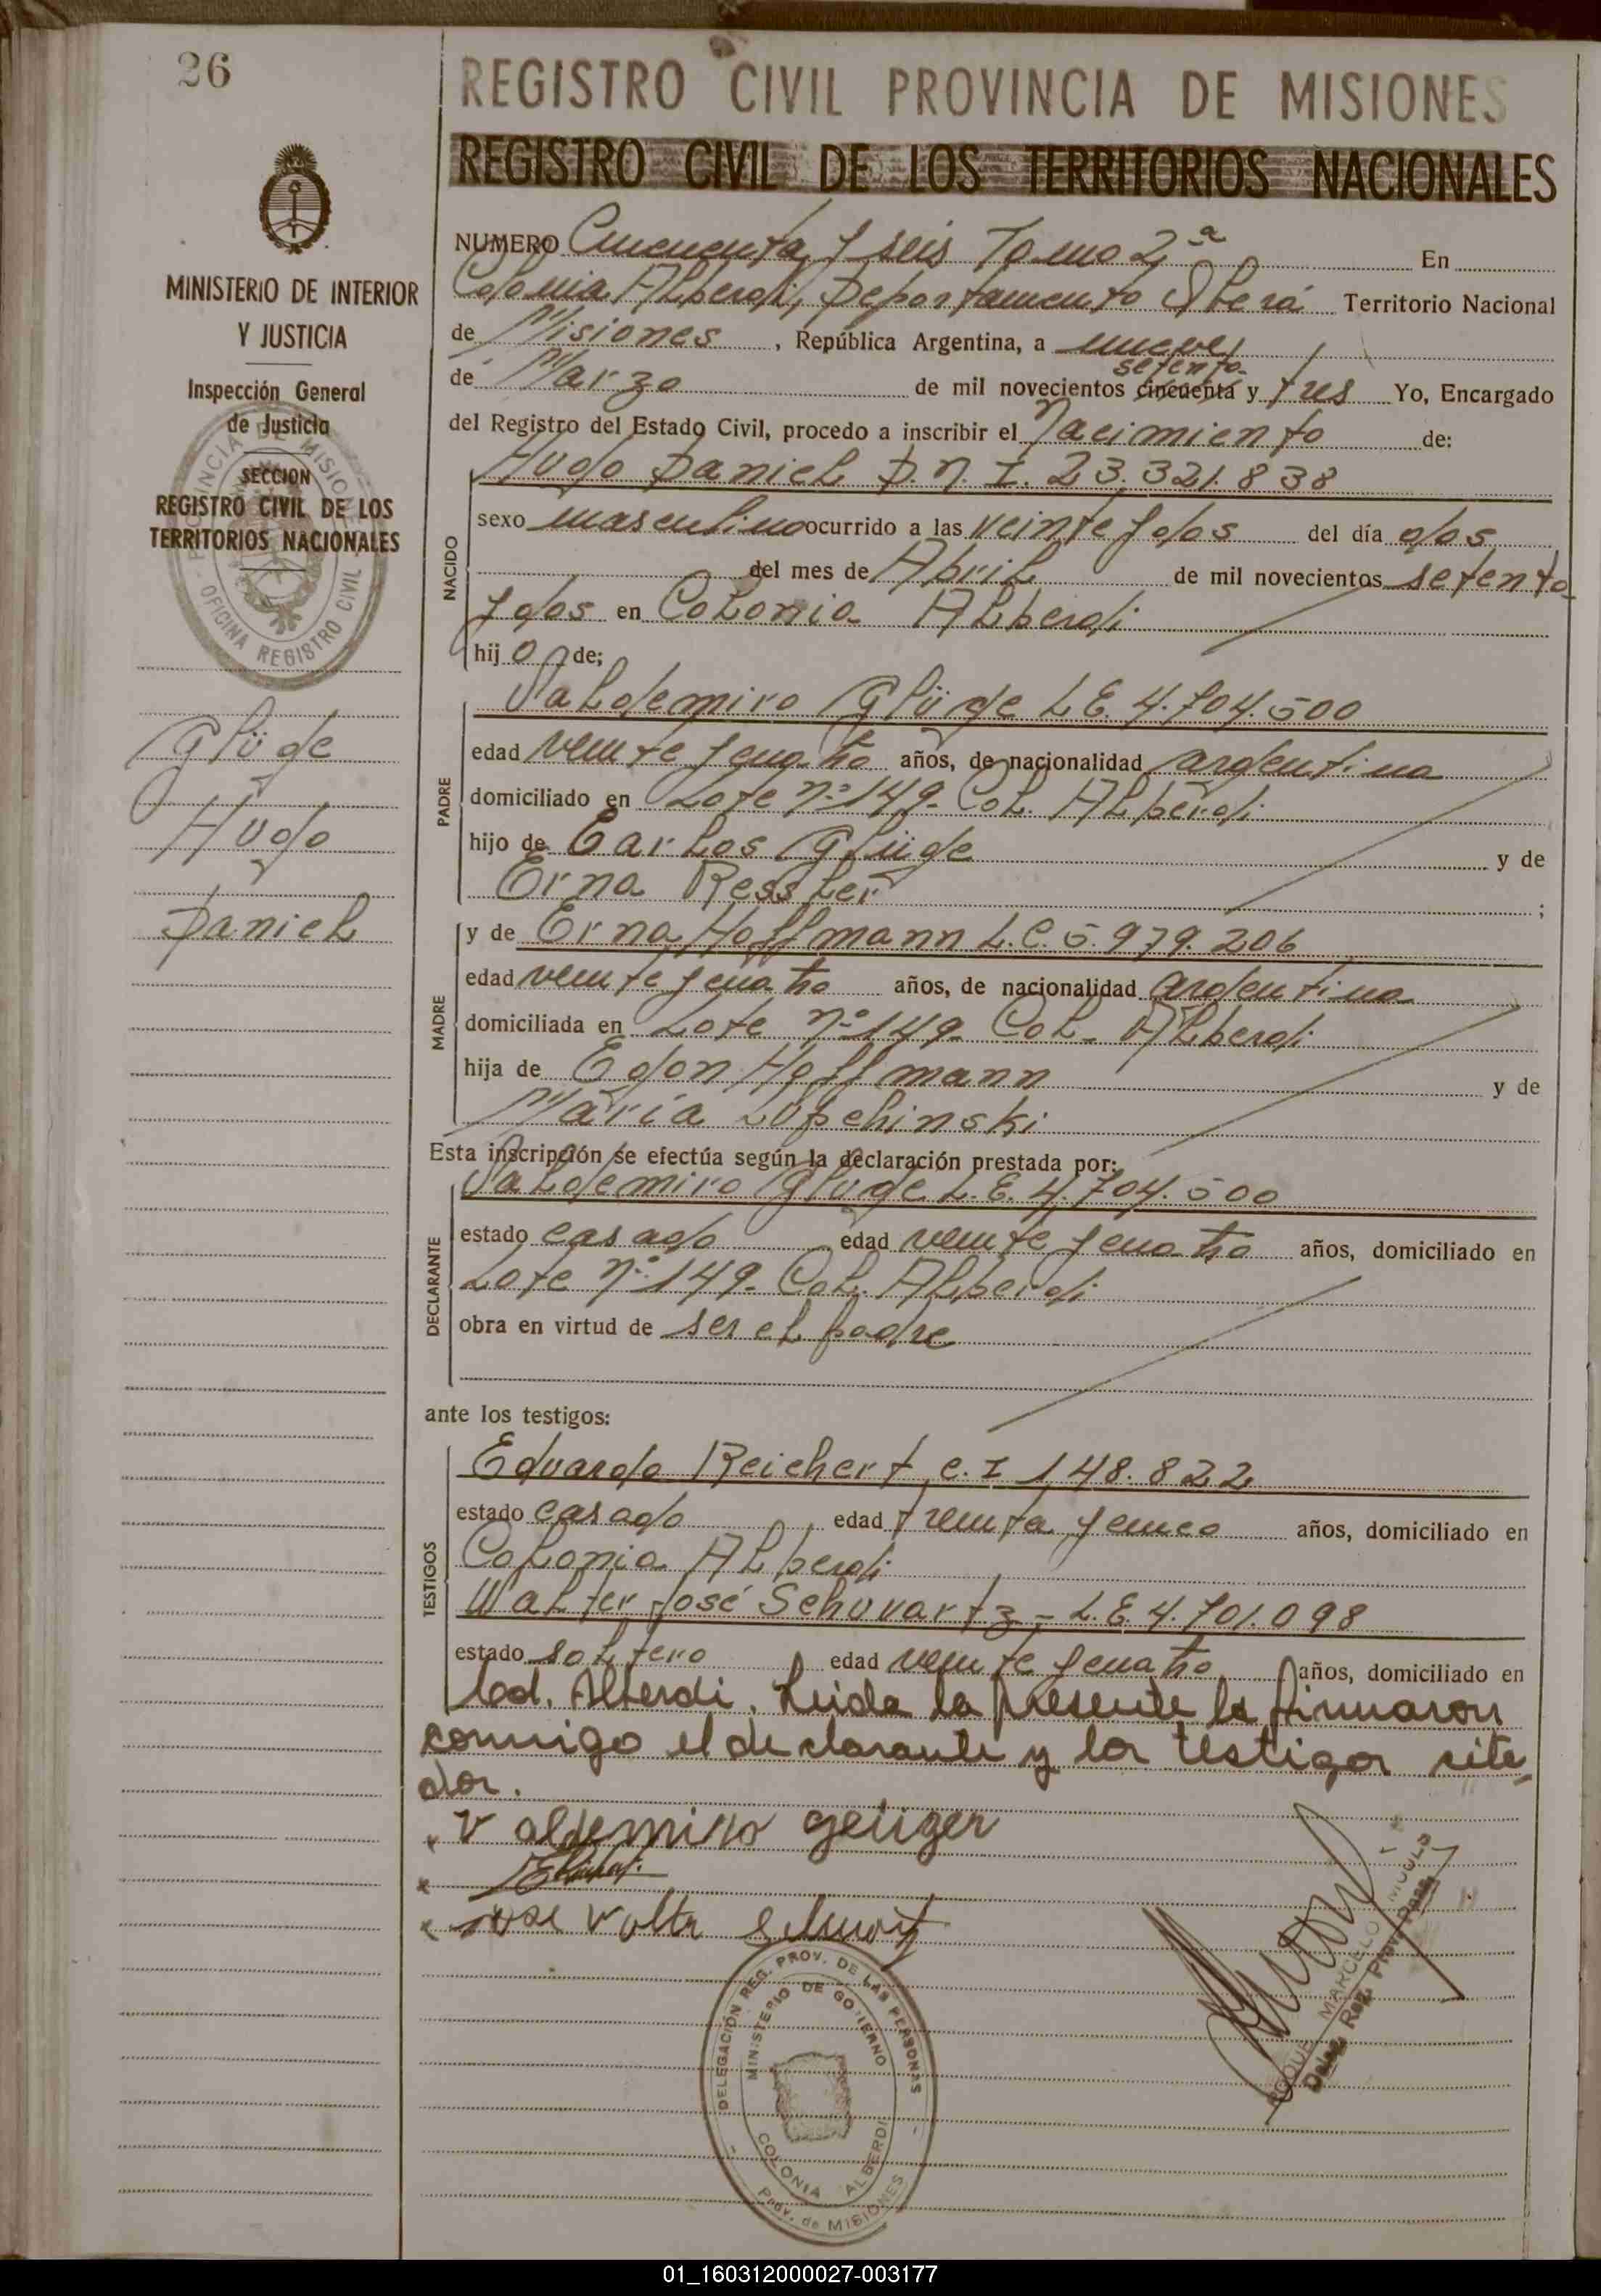 26
REGISTRO CIVIL PROVINCIA DE MISIONES
REGISTRO CIVIL DE LOS TERRITORIOS NACIONALES
MINISTERIO DE INTERIOR
Y JUSTICIA
Inspección General
de Justicia
SECCION
REGISTRO CIVIL DE LOS
TERRITORIOS NACIONALES
PROVINCIA DE MISIONES
OFICINA REGISTRO CIVIL
Glüge
Hugo
Daniel
NUMERO Cincuenta y seis Tomo 2ª En
Colonia Alberdi, Departamento Oberá Territorio Nacional
de Misiones, República Argentina, a nueve
de Marzo de mil novecientos cincuenta setenta y tres Yo, Encargado
del Registro del Estado Civil, procedo a inscribir el Nacimiento de:
NACIDO
Hugo Daniel D.N.I. 23.321.838
sexo masculino ocurrido a las veinte y dos del día dos
del mes de Abril de mil novecientos setenta
y dos en Colonia Alberdi
hijo de;
PADRE
Valdemiro Glüge L.E. 4.704.500
edad veinte y cuatro años, de nacionalidad argentina
domiciliado en Lote Nº 149- Col. Alberdi
hijo de Carlos Glüge y de
Erna Ressler ;
MADRE
y de Erna Hoffmann L.C. 5.979.206
edad veinte y cuatro años, de nacionalidad argentina
domiciliada en Lote Nº 149- Col- Alberdi
hija de Egon Hoffmann y de
María Lopchinski
Esta inscripción se efectúa según la declaración prestada por:
DECLARANTE
Valdemiro Glüge L.E. 4.704.500
estado casado edad veinte y cuatro años, domiciliado en
Lote Nº 149- Col. Alberdi
obra en virtud de ser el padre
ante los testigos:
TESTIGOS
Eduardo Reichert c.I 148.822
estado casado edad treinta y cinco años, domiciliado en
Colonia Alberdi
Walter José Schuvartz - L.E. 4.701.098
estado soltero edad veinte y cuatro años, domiciliado en
Col. Alberdi. Leida la presente la firmaron
conmigo el declarante y los testigos cita-
dos.
Valdemiro geüger
jose Volter
DELEGACIÓN REG. PROV. DE LAS PERSONAS
MINISTERIO DE GOBIERNO
COLONIA ALBERDI
Prov. de MISIONES
ROQUE MARCELO
Deleg. Reg. Prov. Pers.
01_160312000027-003177